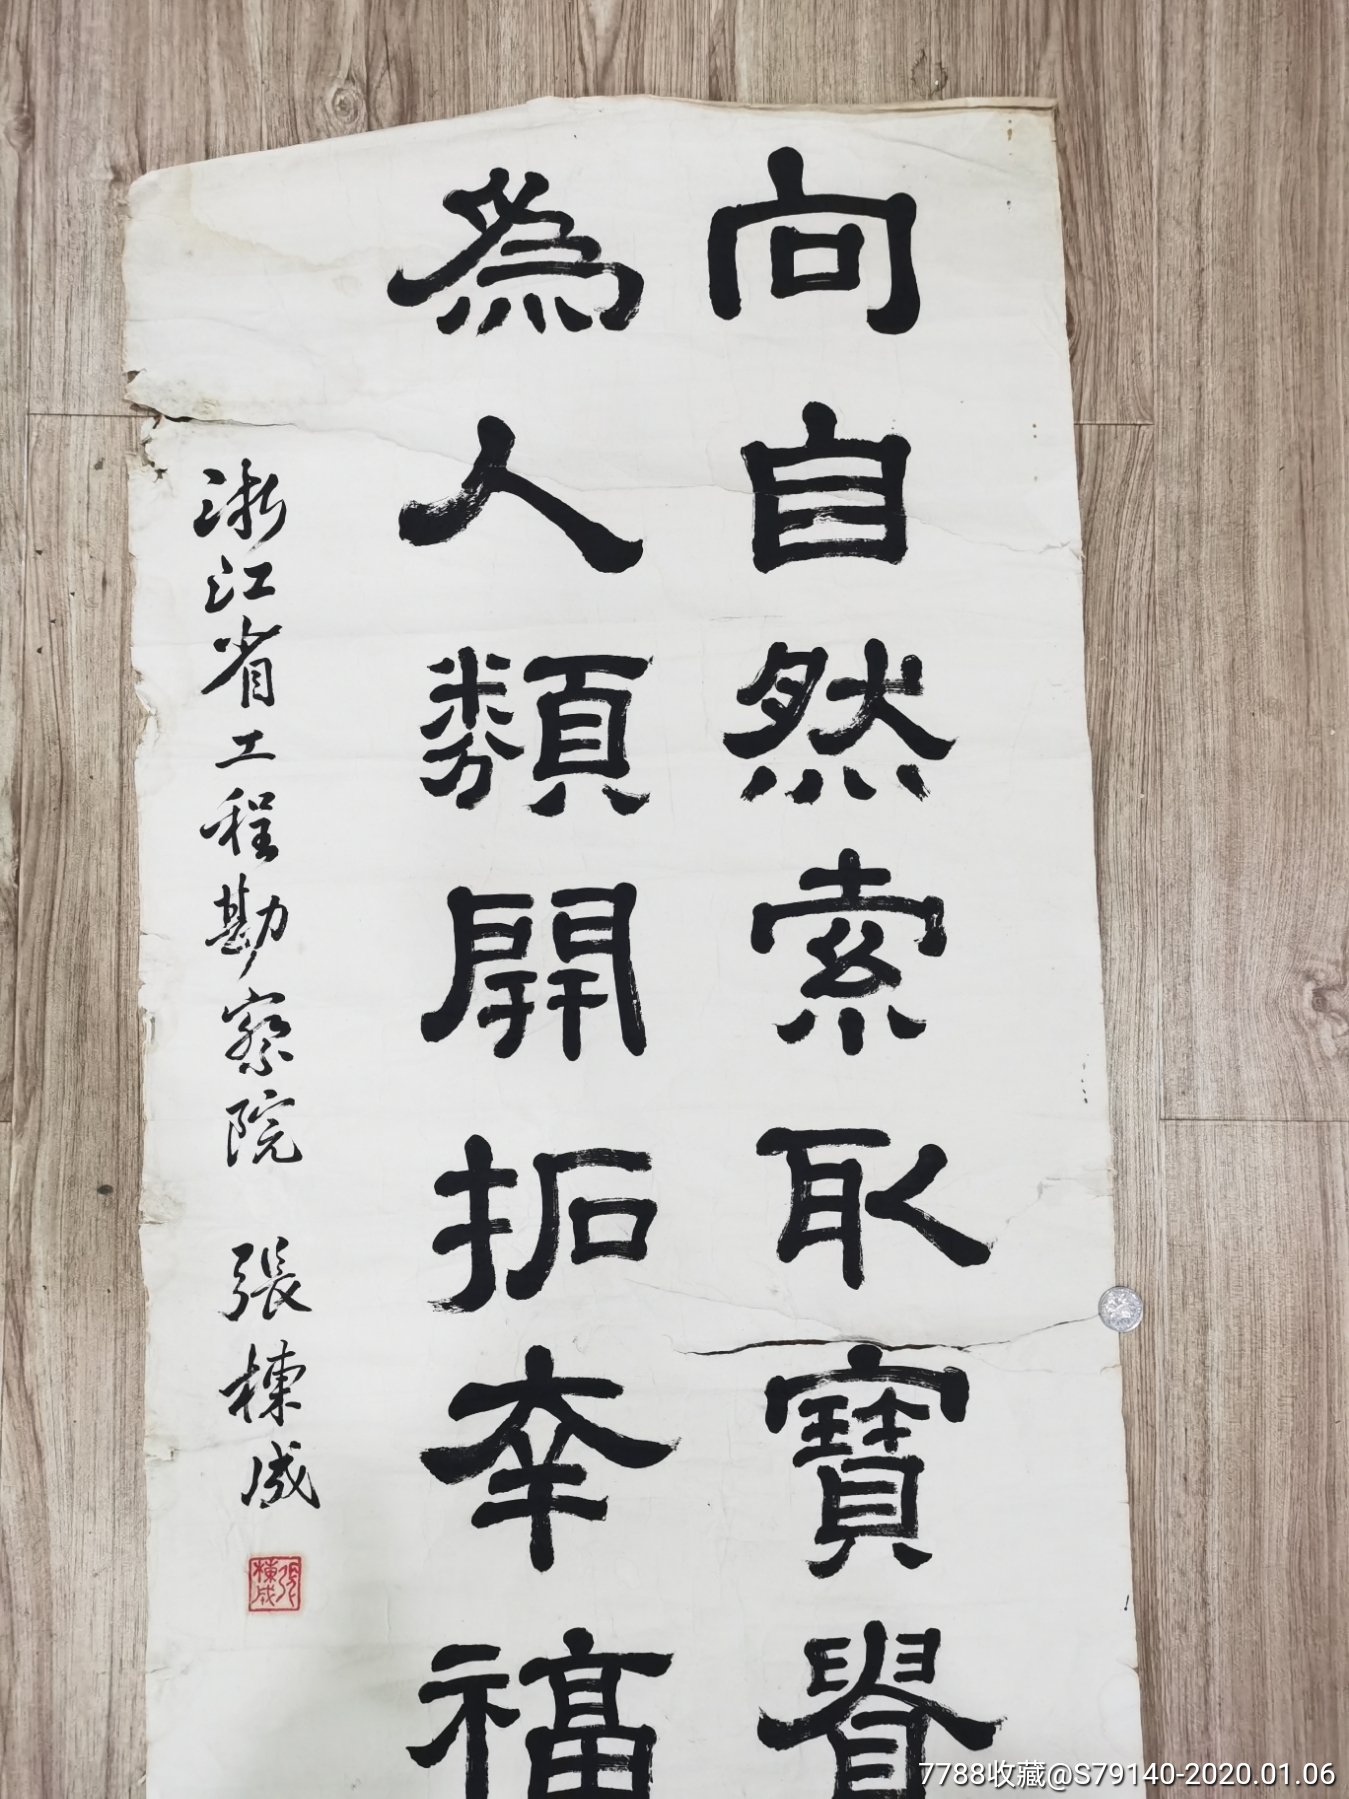 向自然索取寶貴
為人類開拓幸福
浙江省工程勘察院 張棟成
張棟成
7788收藏@S79140-2020.01.06